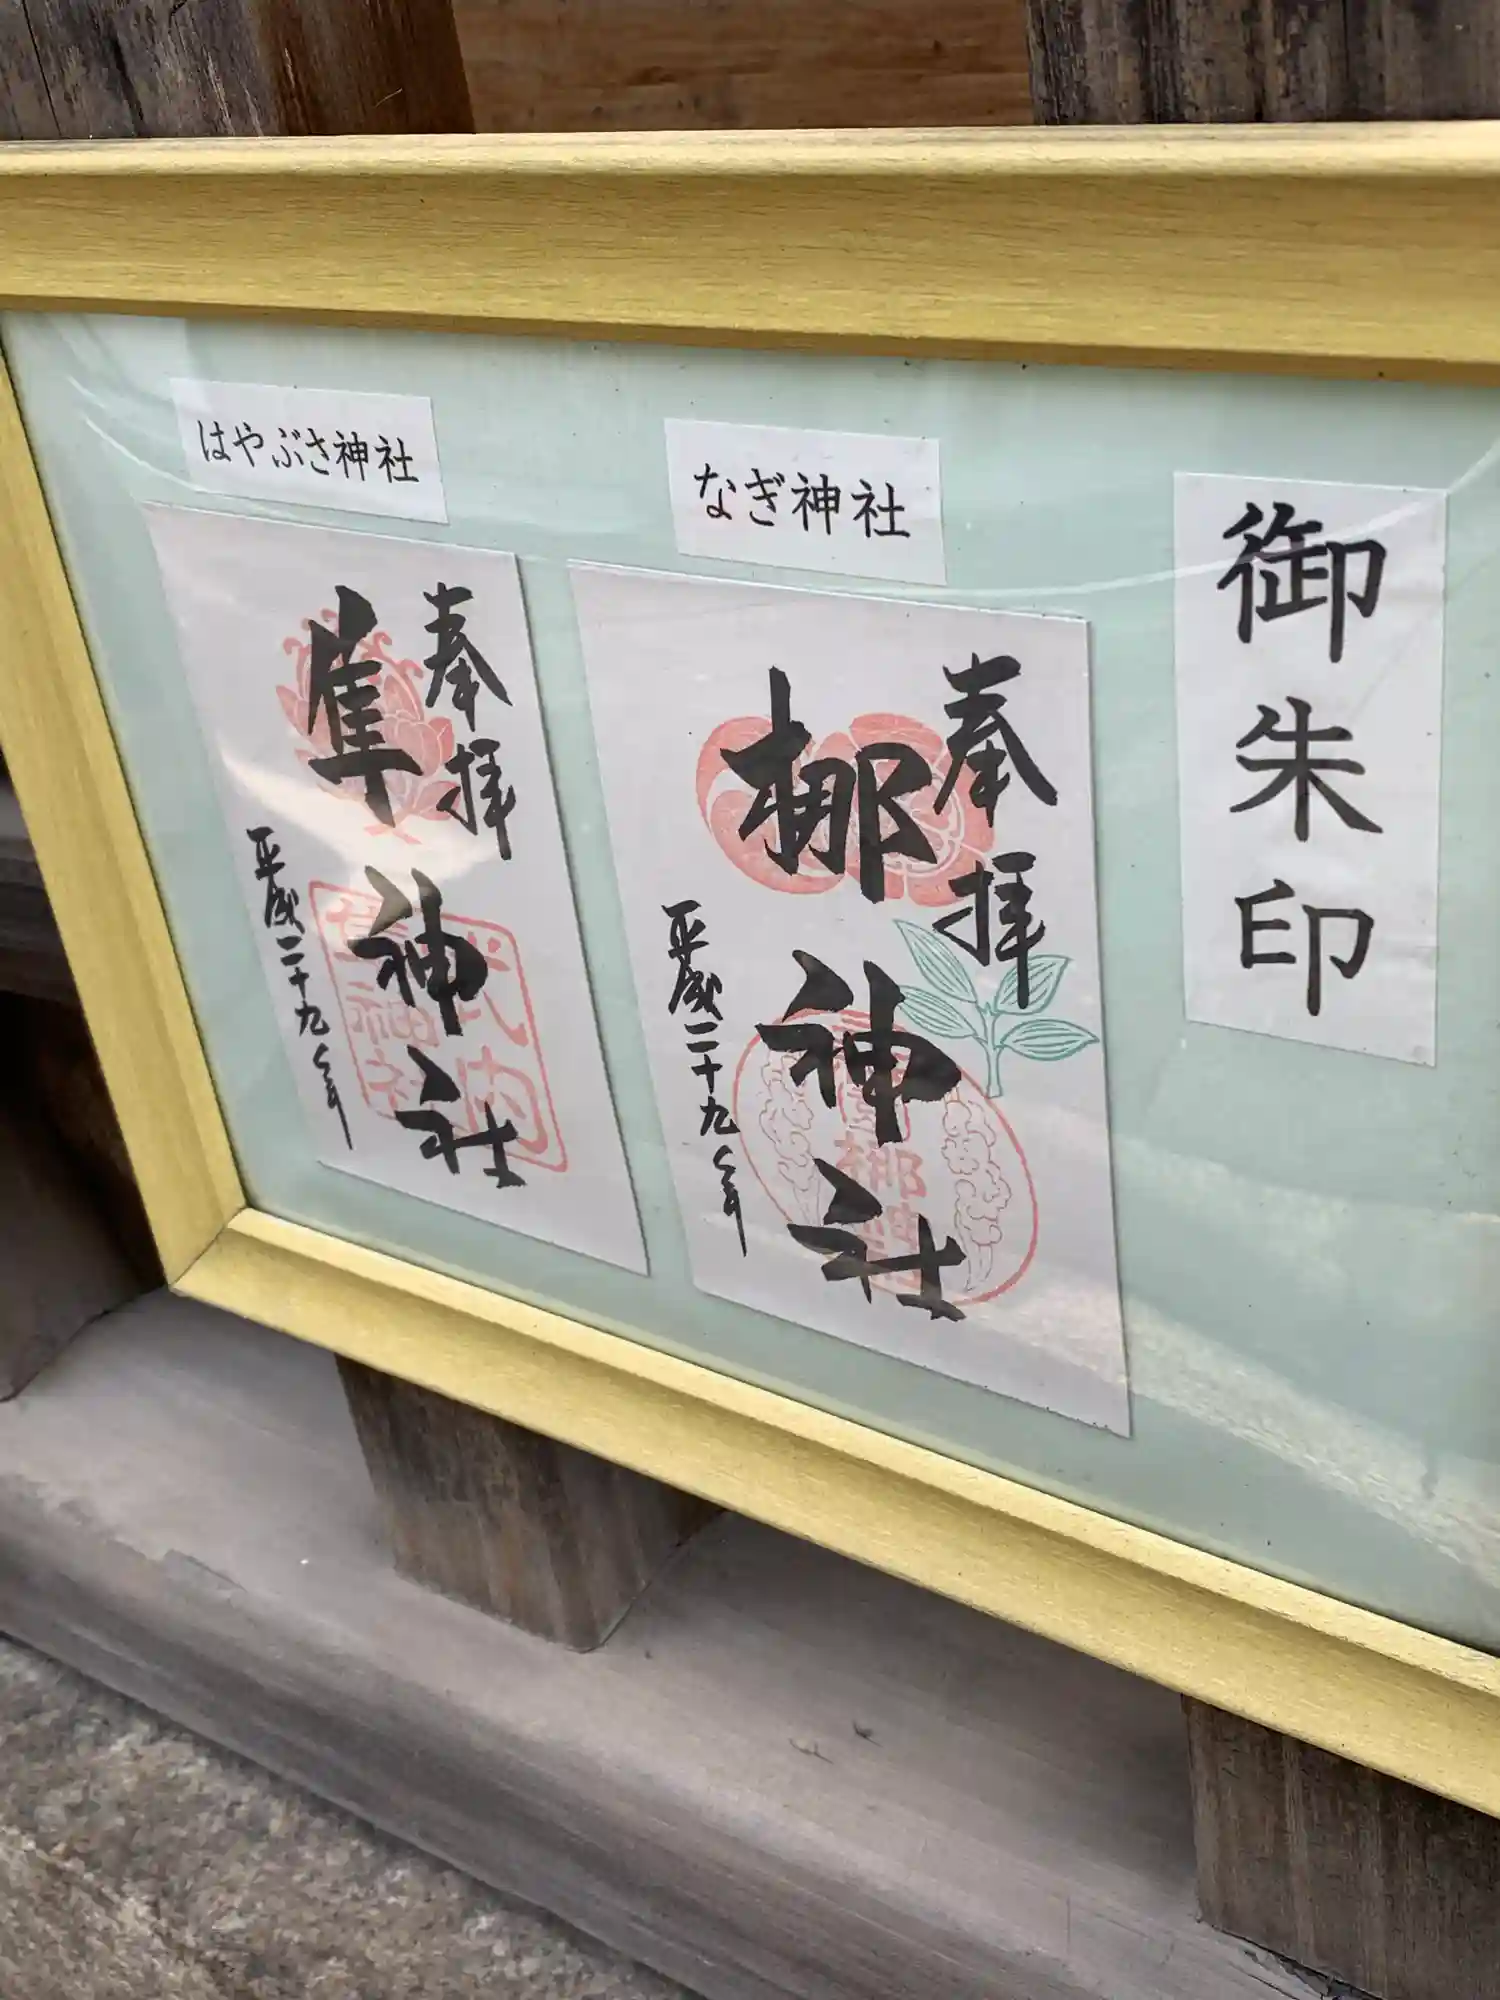 御朱印
なぎ神社
奉拝
梛神社
平成二十九年
はやぶさ神社
奉拝
隼神社
平成二十九年
式内
隼神社